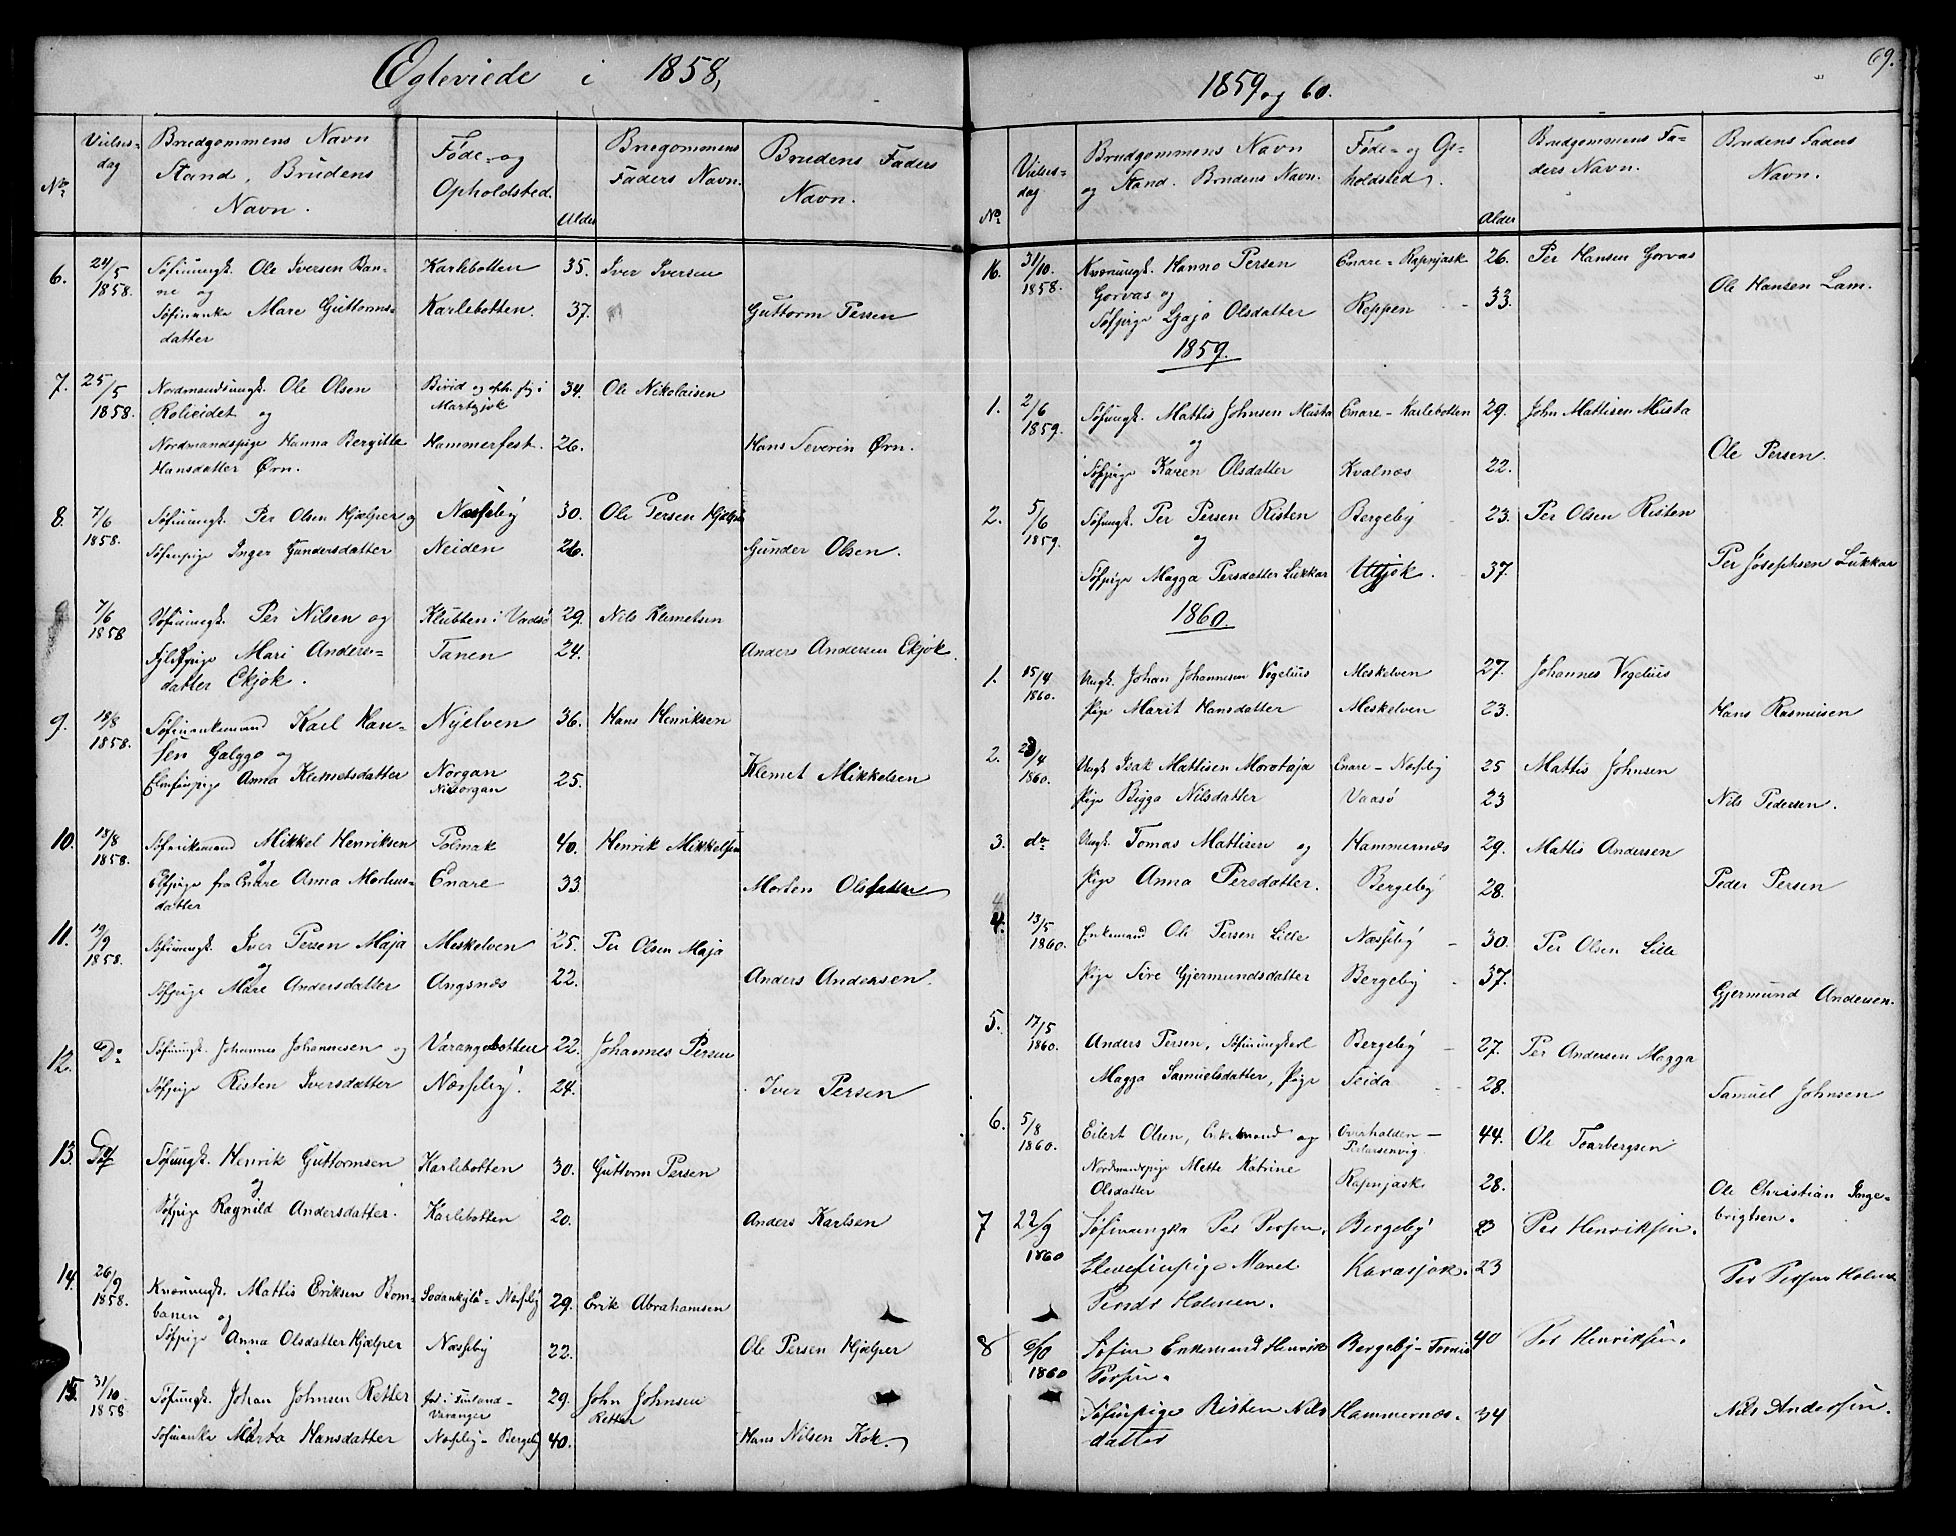 Egteviede i 1858,
No.
Vielses-
dag
Brudgommens Navn
Stand, Brudens
Navn.
Føde- og
Opholdsted.
Alder
Brugommens
Faders Navn.
Brudens Faders
Navn.
6. 24/5 Søfinungk. Ole Iversen Ban- Karlebotten 35. Iver Iversen
1858. ne og
Søfinenke Mare Guttorms- Karlebotten. 37. Guttorm Persen
datter
7. 25/5 Nordmandsungk. Ole Olsen Birid og oph. sig i 34. Ole Nikolaisen
1858. og Martejok
Nordmandspige Hanna Bergitte Hammerfest. 26. Hans Severin Ørn.
Hansdatter Ørn.
8. 7/6 Søfinungk. Per Olsen Hjælper og Næsseby 30. Ole Persen Hjælper
1858. Søfinpige Inger Gundersdatter Neiden 26. Gunder Olsen.
7/6 Søfinungk. Per Nilsen og Klubben i Vadsø 29. Nils Klemetsen
1858 Mari Anders- Tanen 24. Anders Andersen Ekjok.
datter Ekjok.
9. 18/8 Søfinenkemand Karl Han- Nyelven 36. Hans Henriksen
1858. sen Galggo og
Elvefinpige Anna Klemetsdatter Norgan 25. Klemet Mikkelsen
10. 18/8 Mikkel Henriksen Polmak 40. Henrik Mikkelsen
1858. og
pige fra Enare Anna Mortens- Enare 33. Morten Olsen
datter
11. 19/9 Søfinungk. Iver Persen Maja Meskelven 25. Per Olsen Maja
1858. og
Søfpige Mare Andersdatter Angsnæs 22. Anders Andersen.
12. Do Søfinungk. Johannes Johannesen og Varangebotten 22. Johannes Persen
Søfpige Risten Iversdatter Næsseby. 24. Iver Persen
13. Søfungk. Henrik Guttormsen Karlebotten 30. Guttorm Persen
og
Søfpige Ragnild Andersdatter. Karlebotten 20. Anders Karlsen
14. 26/9 Kvænungk. Mattis Eriksen Bom- Sodankylä - Næsseby 29. Erik Abrahamsen
1858. banen og
Søfpige Anna Olsdatter Hjælper Næsseby 22. Ole Persen Hjælper
15. 31/10 Søfinungk. Johan Johnsen Retter fød i Finland - 29. John Johnsen
1858. Varanger Retter
Søfinenke Marta Hansdatter Næsseby - Bergeby 40. Hans Nilsen Kok.
1859 og 60.
69.
No.
Vielses-
dag
Brudgommens Navn
og Stand. Brudens Navn.
Føde- og Op-
holdsted.
Alder
Brudgommens Fa-
ders Navn.
Brudens Faders
Navn.
16. 31/10. Kvænungk. Hanno Persen Enare - Rapnjask 26. Per Hansen Gorvas
1858. Gorvas og
Søfpige Gjaja Olsdatter Reppen 33. Ole Hansen Lam.
1859.
1. 2/6 Søfungk. Mattis Johnsen Musta Enare - Karlebotten 29. John Mattisen Musta
1859. og
Søfpige Karen Olsdatter Kvalnæs 22. Ole Persen.
2. 5/6 Søfungk. Per Persen Risten Bergeby 23. Per Olsen Risten
1859. og
Søfpige Magga Persdatter Lukkar Utsjok. 37. Per Josephsen Lukkar
1860.
1. 15/4 Ungk. Johan Johannesen Vegelius Meskelven 27. Johannes Vegelius
1860. Pige Marit Hansdatter Meskelven 23. Hans Rasmusen
2. 23/4 Ungk Isak Mattisen Morotaja Enare - Næsseby 25 Mattis Johnsen
1860. Pige Bigga Nilsdatter Vadsø 23 Nils Pedersen.
3. do Ungk. Tomas Mattisen og Hammernæs 29. Mattis Andersen
Pige Anna Persdatter. Bergeby 28. Peder Persen
4. 13/5 Enkemand Ole Persen Lille Næsseby 30. Per Olsen Lille
1860. Pige Sire Gjermundsdatter Bergeby 37. Gjermund Andersen.
5. 17/5 Anders Persen, Søfinungkarl Bergeby 27. Per Andersen Magga
1860. Magga Samuelsdatter, Pige Seida 28. Samuel Johnsen
6. 5/8 Eilert Olsen, Enkemand og Overhalden - 44. Ole Toarbergsen
1860. Perlarsenvig
Nordmandspige Mette Katrine Rapnjask 28. Ole Christian Inge-
Olsdatter brigtsen.
7 22/9 Søfinungka Per Persen. Bergeby 23 Per Henriksen.
1860 Elevefinpige Mared Karasjok. 23 Per Persen Holm
Persdr Holmen.
8 1860 Søfin Enkemand Henrik Bergeby - Tornio 40 Per Henriksen.
Persen.
Søfinpige Risten Nils Hammernæs. 34 Nils Andersen.
datter